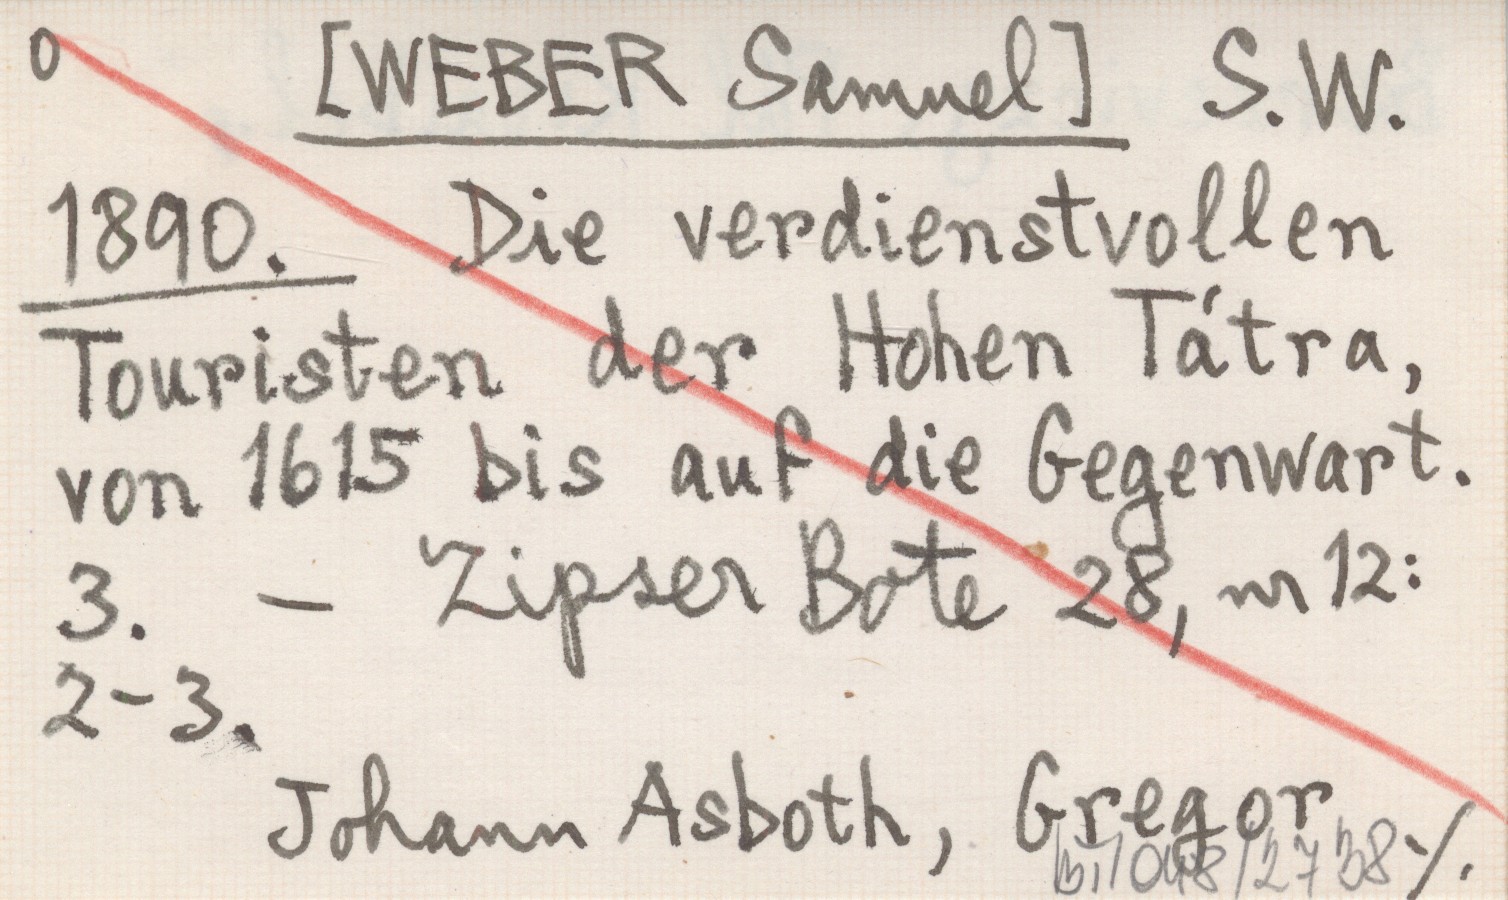 0 [WEBER Samuel] S.W.
1890. Die verdienstvollen
Touristen der Hohen Tátra,
von 1615 bis auf die Gegenwart.
3. – Zipser Bote 28, nr 12:
2-3.
Johann Asboth, Gregor ./.
bi/048/2738